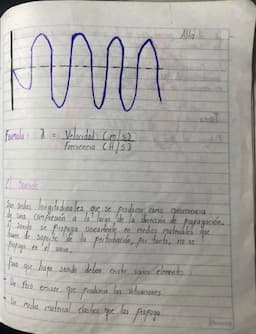 Alto
Formula: λ = Velocidad: (m/s)
Frecuencia (H/s)
El Sonido
Son ondas longitudinales que se producen como consecuencia
de una compresión a lo largo de la dirección de propagación.
El sonido se propaga únicamente en medios materiales que
hacen de soporte de la perturbación, por tanto, no se
propaga en el vacío.
Para que haya sonido deben existir varios elementos:
• Un foco emisor que produzca las vibraciones
• Un medio material elástico que las propaga